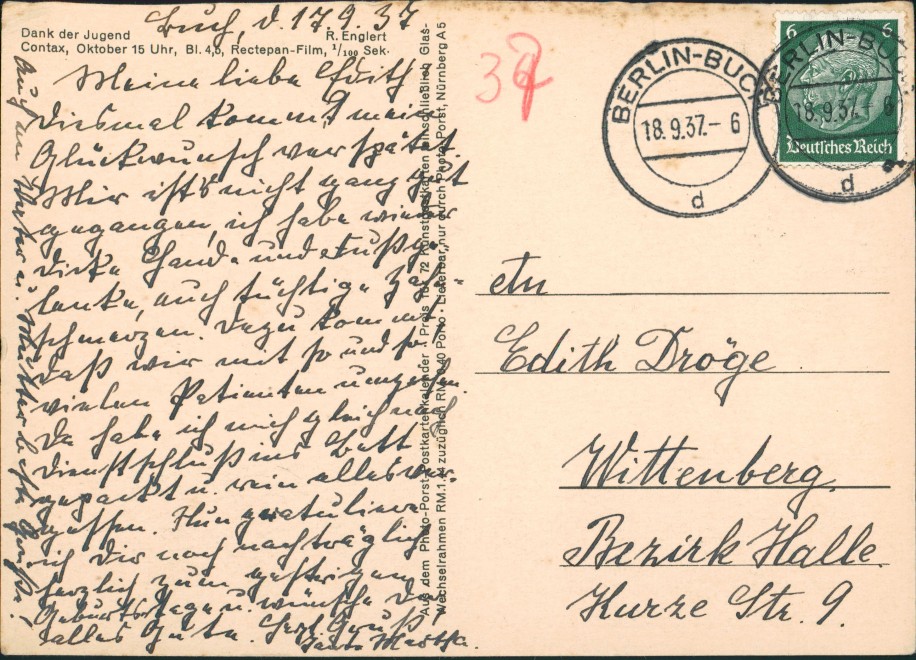 Buch, d. 17.9.37
Dank der Jugend R. Englert
Contax, Oktober 15 Uhr, Bl. 4,5, Rectepan-Film, 1/100 Sek.
Meine liebe Edith
Diesmal kommt mein
Glückwunsch verspätet
Mir ist's nicht ganz gut
gegangen, ich habe wieder
dicke Hände und Füße,
auch tüchtige Zahn-
schmerzen. Dazu kommt,
daß wir mit so und so
vielen Patienten umgehen
Da habe ich mich gleich nach
Dienstschluß ins Bett
gepackt u. rein alles ver-
gessen. Nun gratuliere
ich Dir noch nachträglich
herzlich zum gestrigen
Geburtstage u. wünsche Dir
alles Gute. Herzl. Gruß
Tante Martha.
Auch an Vater u. Mutter beste Grüße!
Aus dem Photo-Porst-Postkartenkalender · Preis für 72 Kunstpostkarten einschließlich Glas-
Wechselrahmen RM. zuzüglich RM. 0.40 Porto · Lieferbar nur durch Photo-Porst, Nürnberg A 5
BERLIN-BUCH
18.9.37.- 6
d
BERLIN-BUCH
18.9.37.- 6
d
6 6
Deutsches Reich
Edith Dröge
Wittenberg
Bezirk Halle.
Kurze Str. 9.